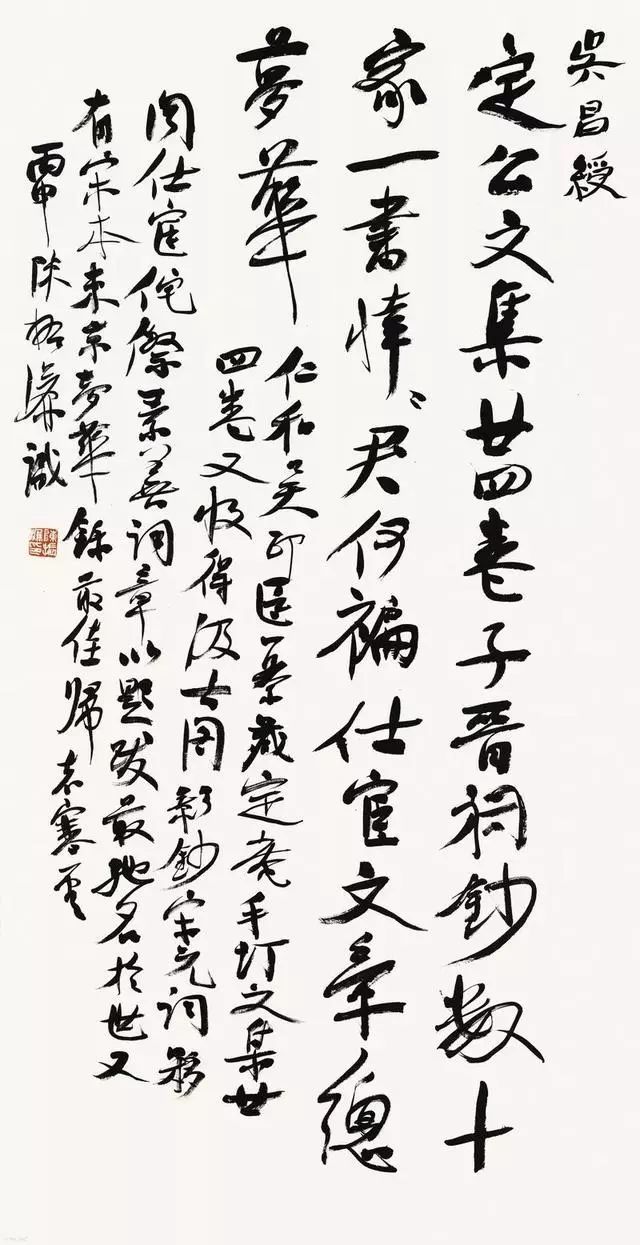 吳昌綬
定公文集廿四卷子晉詞鈔數十
家一書悻〻君何褊仕宦文章總
夢華
仁和吴印臣藏定庵手订文集廿
四卷又收得汲古阁影鈔宋元詞夥
因仕宦侘傺兼善詞章以題跋最馳名於世又
有宋本東京夢華錄最佳歸袁寒雲
丙申陳振濂識